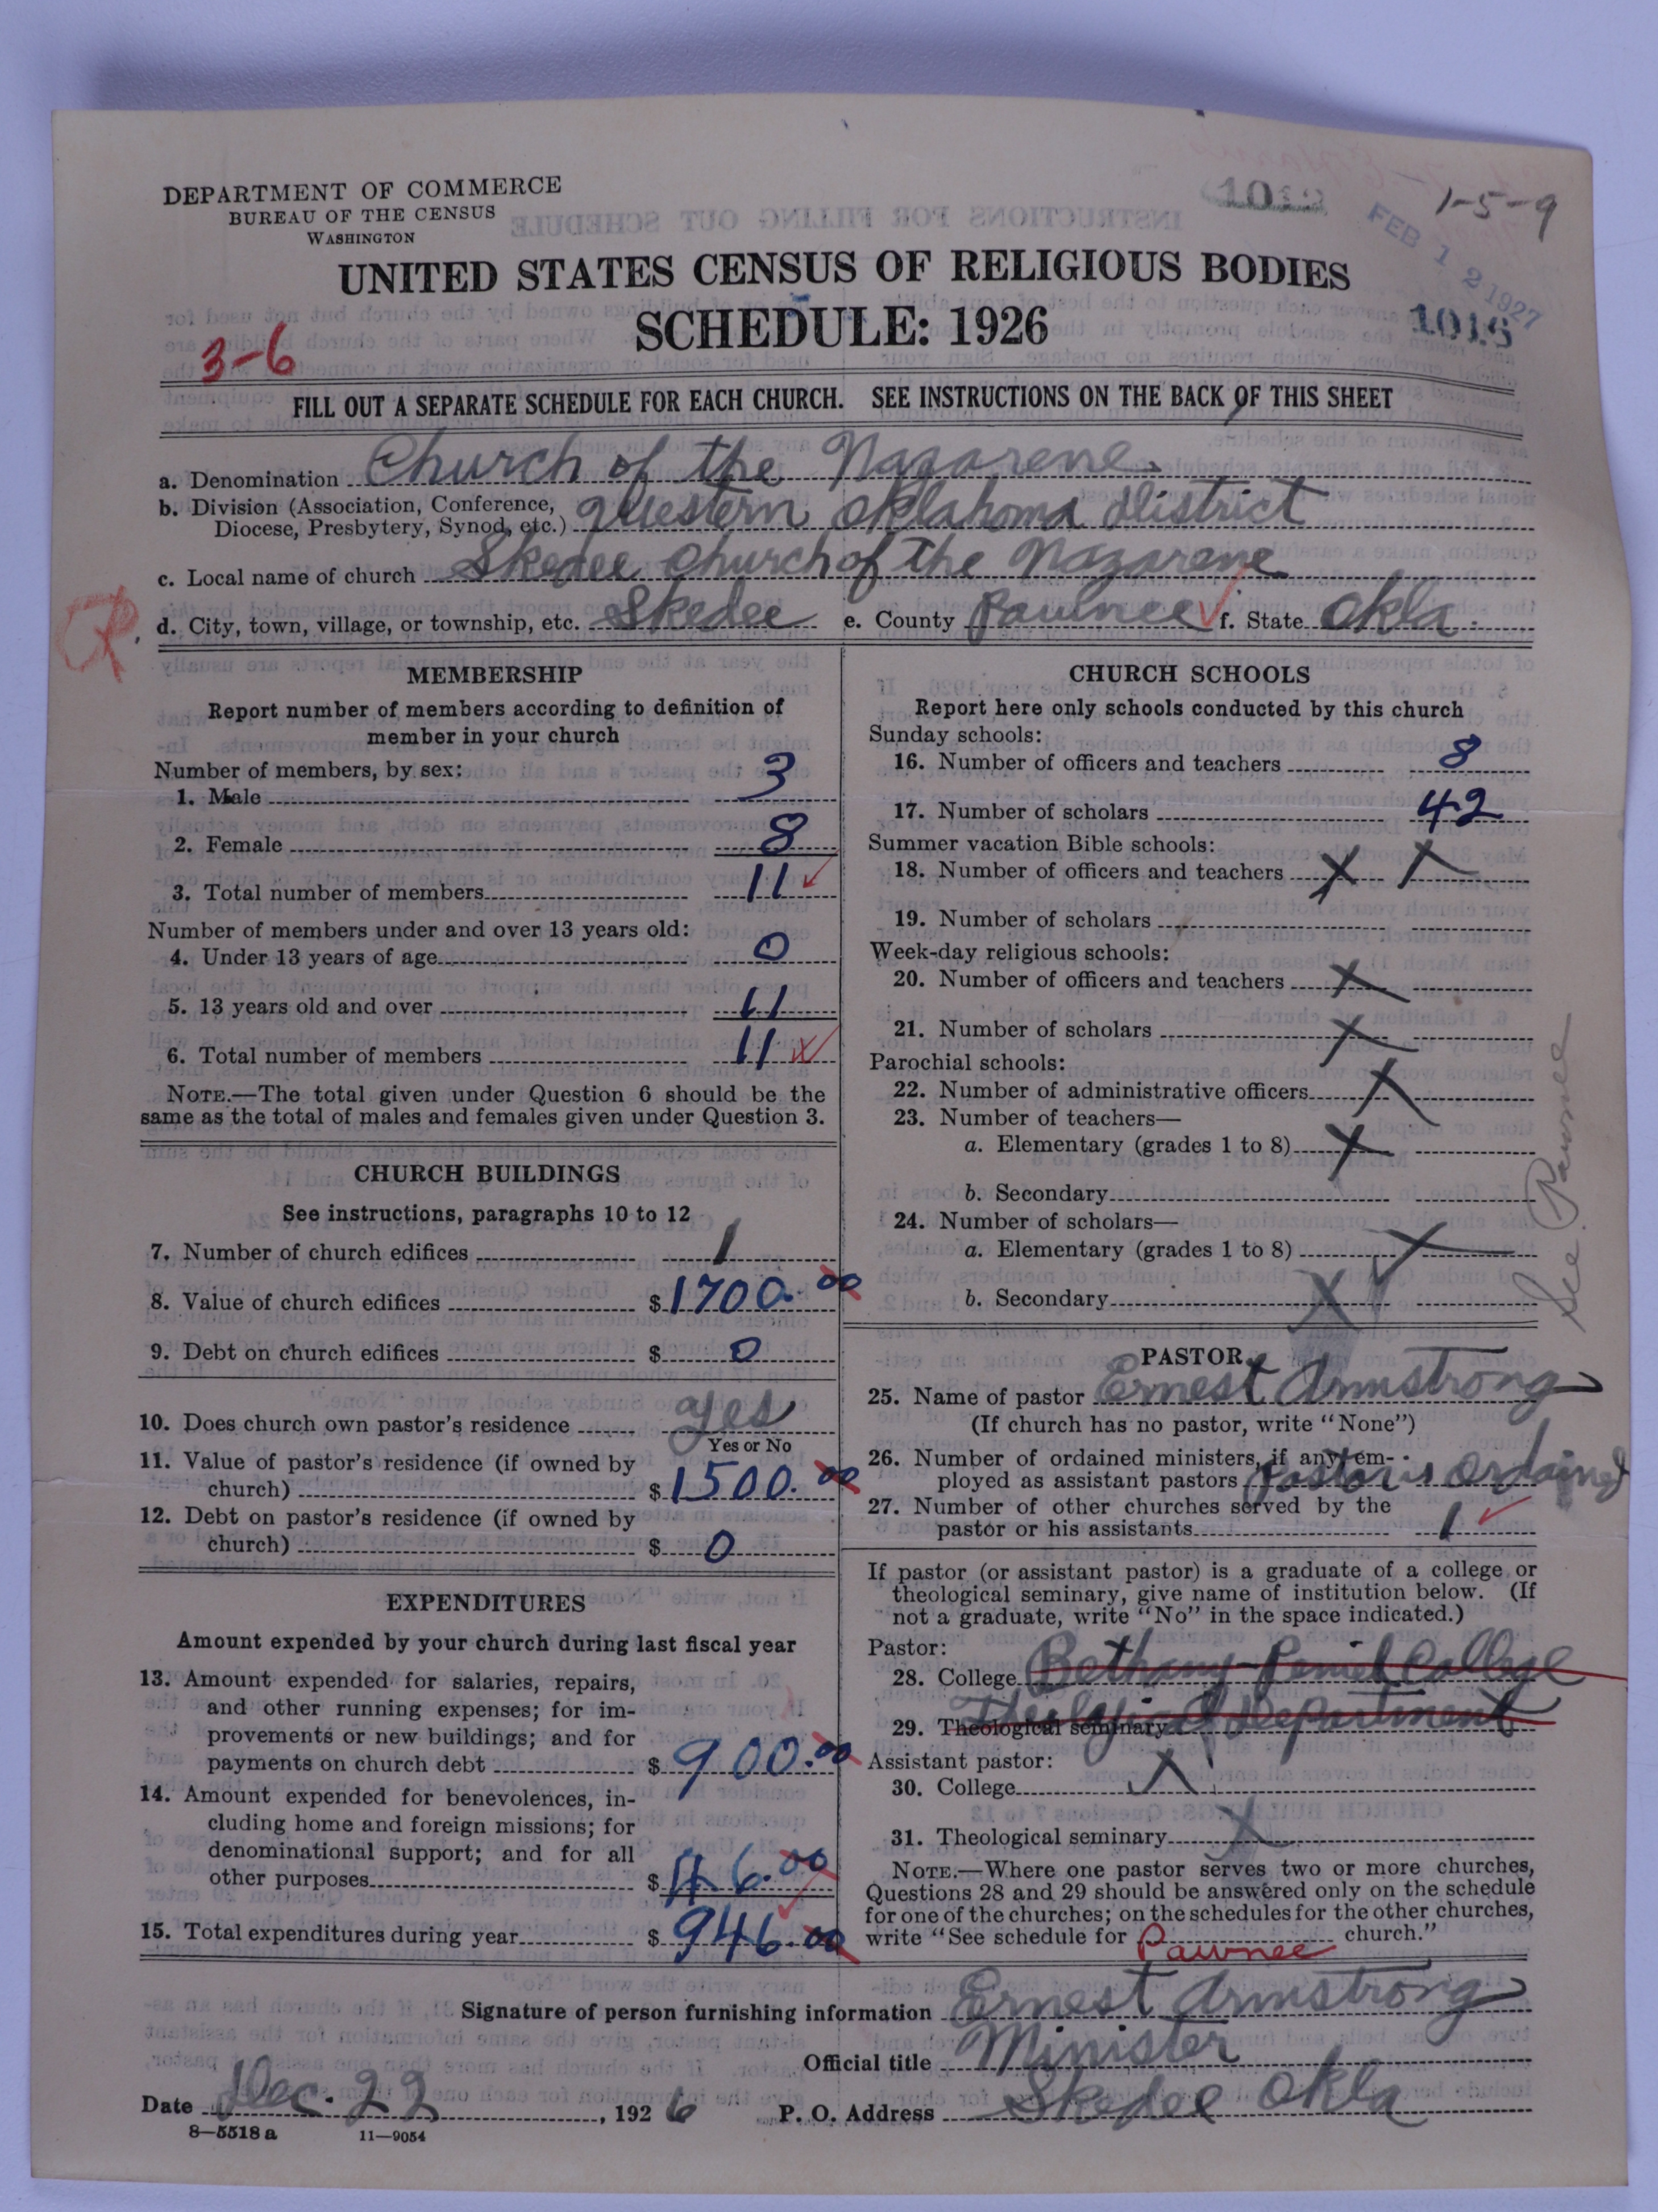 DEPARTMENT OF COMMERCE
BUREAU OF THE CENSUS
WASHINGTON
1-5-9
FEB 12 1927
UNITED STATES CENSUS OF RELIGIOUS BODIES
SCHEDULE: 1926
1016
3-6
FILL OUT A SEPARATE SCHEDULE FOR EACH CHURCH. SEE INSTRUCTIONS ON THE BACK OF THIS SHEET
a. Denomination Church of the Nazarene.
b. Division (Association, Conference, Diocese, Presbytery, Synod, etc.) Western Oklahoma District
c. Local name of church Skedee Church of the Nazarene
d. City, town, village, or township, etc. Skedee e. County Pawnee f. State Okla.
MEMBERSHIP
Report number of members according to definition of
member in your church
Number of members, by sex:
1. Male 3
2. Female 8
3. Total number of members 11
Number of members under and over 13 years old:
4. Under 13 years of age 0
5. 13 years old and over 11
6. Total number of members 11
NOTE.—The total given under Question 6 should be the
same as the total of males and females given under Question 3.
CHURCH BUILDINGS
See instructions, paragraphs 10 to 12
7. Number of church edifices 1
8. Value of church edifices $1700.00
9. Debt on church edifices $ 0
10. Does church own pastor's residence yes
Yes or No
11. Value of pastor's residence (if owned by
church) $1500.00
12. Debt on pastor's residence (if owned by
church) $ 0
EXPENDITURES
Amount expended by your church during last fiscal year
13. Amount expended for salaries, repairs,
and other running expenses; for im-
provements or new buildings; and for
payments on church debt $ 900.00
14. Amount expended for benevolences, in-
cluding home and foreign missions; for
denominational support; and for all
other purposes $ 46.00
15. Total expenditures during year $ 946.00
CHURCH SCHOOLS
Report here only schools conducted by this church
Sunday schools:
16. Number of officers and teachers 8
17. Number of scholars 42
Summer vacation Bible schools:
18. Number of officers and teachers X X
19. Number of scholars
Week-day religious schools:
20. Number of officers and teachers X
21. Number of scholars X
Parochial schools:
22. Number of administrative officers X
23. Number of teachers—
a. Elementary (grades 1 to 8) X
b. Secondary
24. Number of scholars—
a. Elementary (grades 1 to 8) X
b. Secondary X
See Pawnee
PASTOR
25. Name of pastor Ernest Armstrong
(If church has no pastor, write "None")
26. Number of ordained ministers, if any, em-
ployed as assistant pastors Pastor is ordained
27. Number of other churches served by the
pastor or his assistants 1
If pastor (or assistant pastor) is a graduate of a college or
theological seminary, give name of institution below. (If
not a graduate, write "No" in the space indicated.)
Pastor:
28. College Bethany-Peniel College
29. Theological seminary Theological Department
Assistant pastor:
30. College X
31. Theological seminary X
NOTE.—Where one pastor serves two or more churches,
Questions 28 and 29 should be answered only on the schedule
for one of the churches; on the schedules for the other churches,
write "See schedule for Pawnee church."
Signature of person furnishing information Ernest Armstrong
Official title Minister
Date Dec. 22, 1926 P. O. Address Skedee Okla
8—5518 a 11—9054